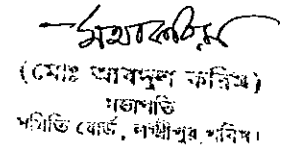 (মোঃ আবদুল করিম)
সভাপতি
সমিতি বোর্ড, লক্ষ্মীপুর, পবিস।